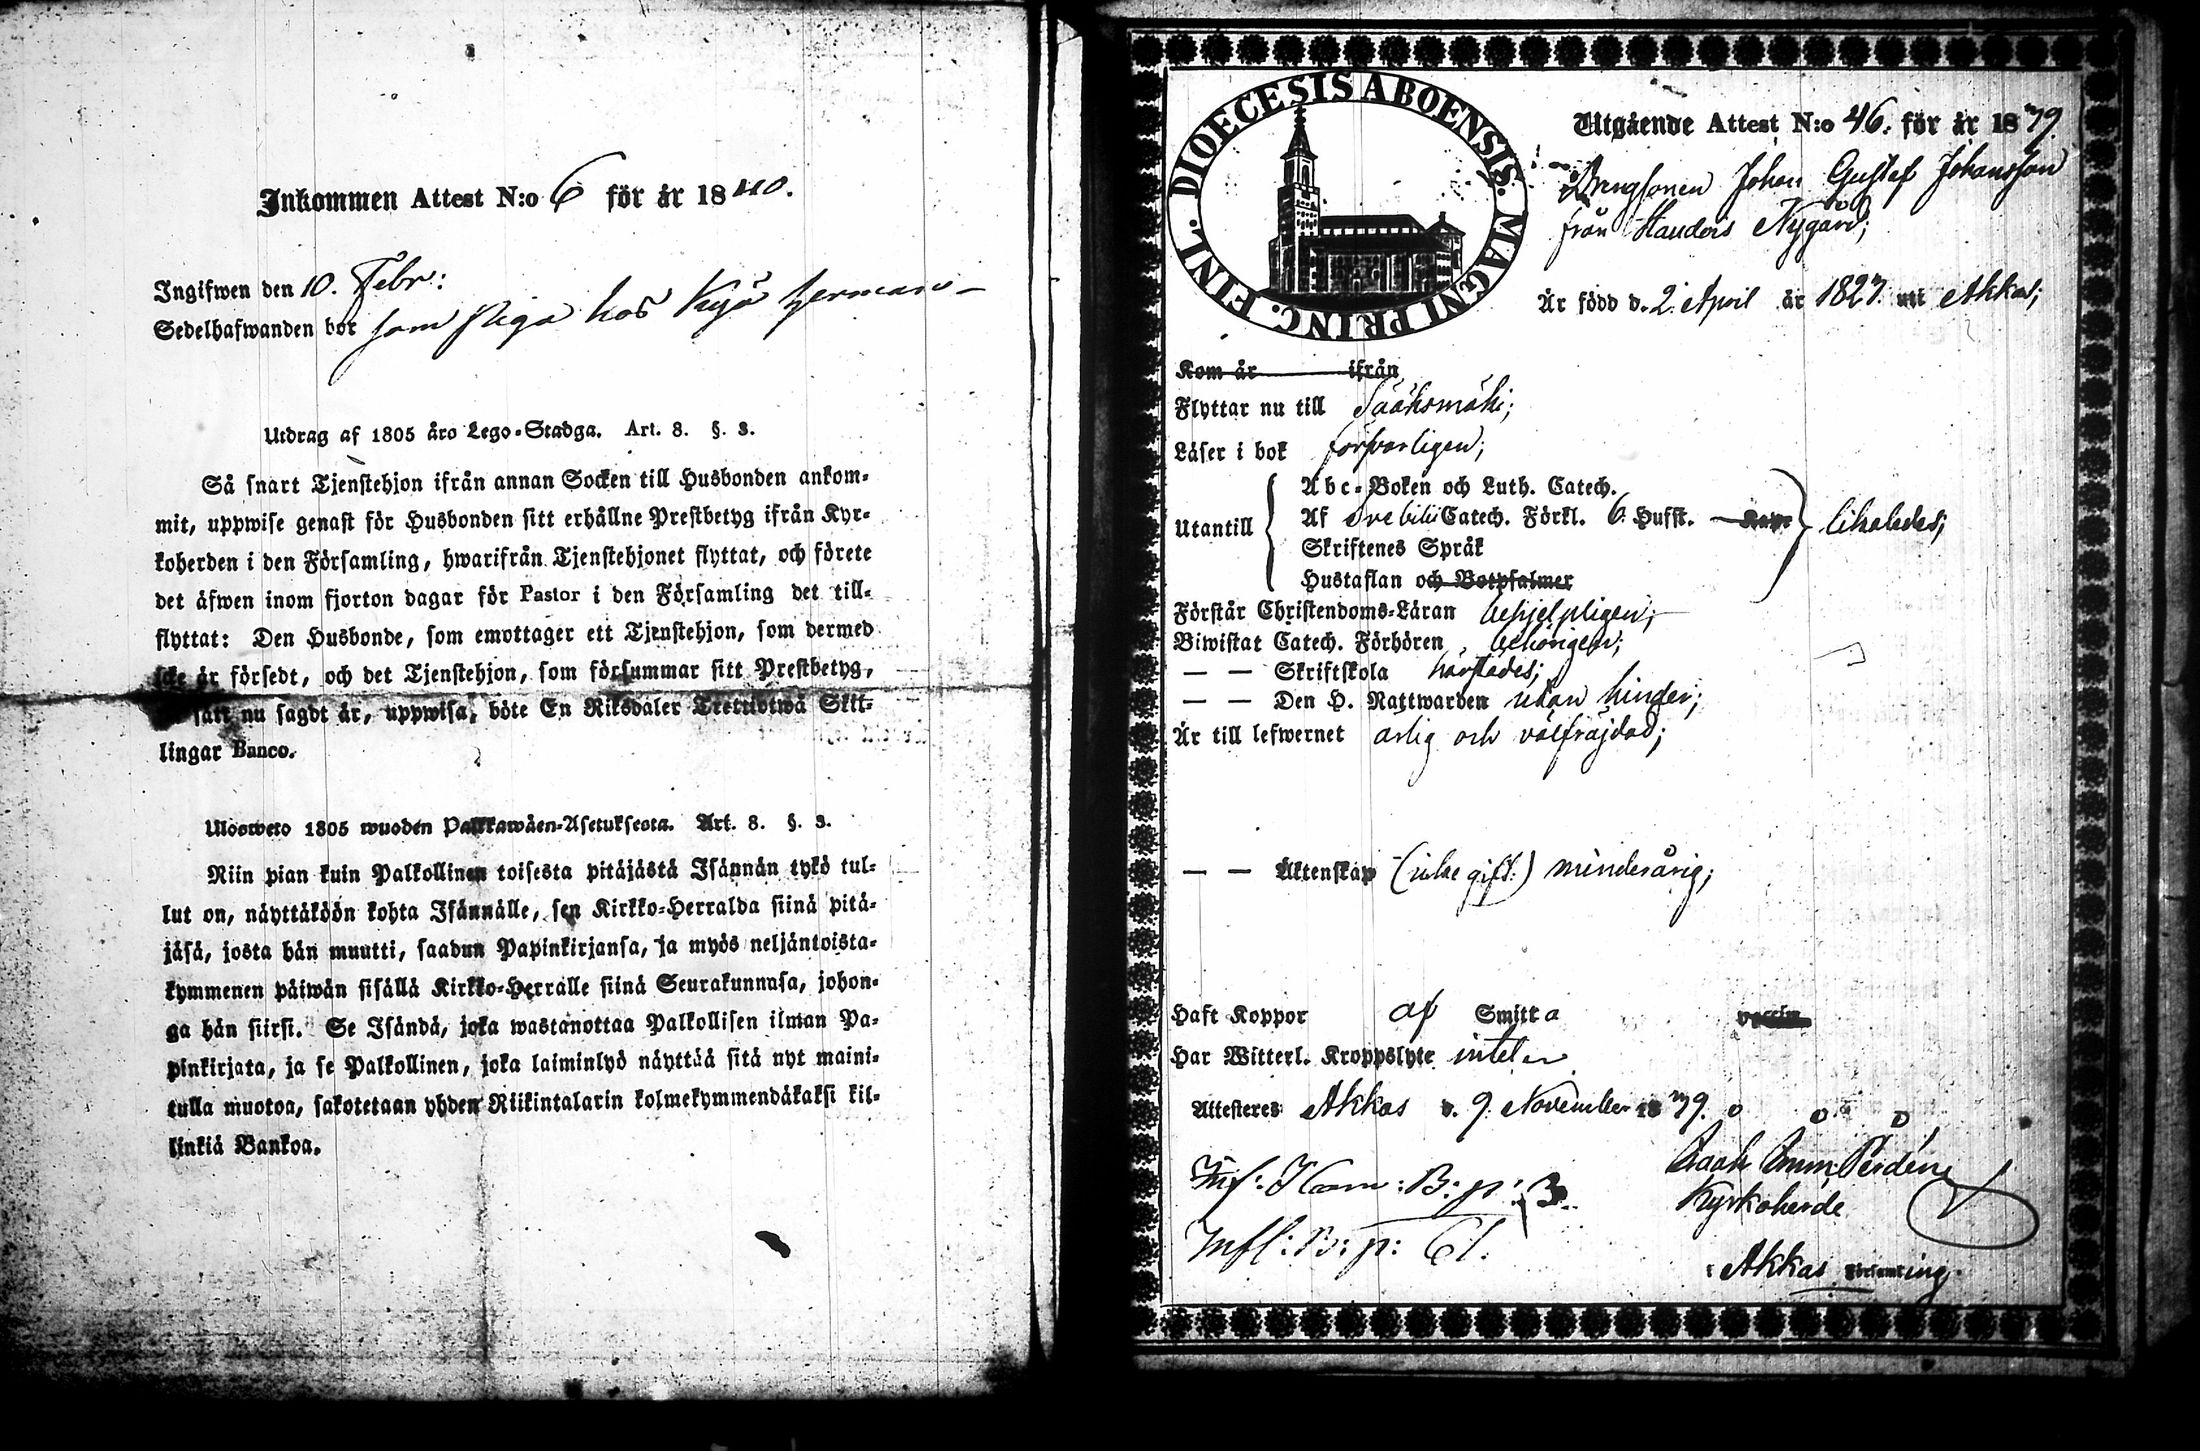 Inkommen Attest N:o 6 för år 1840.
Ingifwen den 10. Febr:
Sedelhafwanden bor som piga hos Kyö herman-
Utdrag af 1805 års Lego-Stadga. Art. 8. §. 3.
Så snart Tjenstehjon ifrån annan Socken till Husbonden ankom-
mit, uppwise genast för Husbonden sitt erhållne Prestbetyg ifrån Kyr-
koherden i den Församling, hwarifrån Tjenstehjonet flyttat, och förete
det äfwen inom fjorton dagar för Pastor i den Församling det till-
flyttat: Den Husbonde, som emottager ett Tjenstehjon, som dermed
icke är försedt, och det Tjenstehjon, som försummar sitt Prestbetyg,
sätt nu sagdt är, uppwisa, böte En Riksdaler Trettiotwå Skil-
lingar Banco.
Ulosweto 1805 wuoden Palkkawäen-Asetuksesta. Art. 8. §. 3.
Niin pian kuin Palkollinen toisesta pitäjästä Isännän tykö tul-
lut on, näyttäköön kohta Isännälle, sen Kirkko-Herralda siinä pitä-
jäsä, josta hän muutti, saadun Papinkirjansa, ja myös neljäntoista-
kymmenen päiwän sisällä Kirkko-Herralle siinä Seurakunnasa, johon-
ga hän siirsi. Se Isändä, joka wastanottaa Palkollisen ilman Pa-
pinkirjata, ja se Palkollinen, joka laiminlyö näyttää sitä nyt maini-
tulla muotoa, sakotetaan yhden Riikintalarin kolmekymmendäkaksi kil-
linkiä Bankoa.
DIOECESIS ABOENSIS. MAGNI PRINC. FINL.
Utgående Attest N:o 46. för år 1839
Drengsonen Johan Gustef Johansson
från Nygård;
Är född d. 2. April år 1827. uti Akkas;
Kom år ifrån
Flyttar nu till Sääksmäki;
Läser i bok försvarligen;
Utantill
Abc-Boken och Luth. Catech.
Af Svebilii Catech. Förkl. 6. Hufst.
Skriftenes Språk
Hustaflan och Botpsalmer
likaledes;
Förstår Christendoms-Läran behjelpligen;
Biwistat Catech. Förhören behörigen;
— — Skriftskola härstädes;
— — Den H. Nattwarden utan hinder;
Är till lefwernet ärlig och välfräjdad;
— — Äktenskap (icke gift:) minderårig;
Haft Koppor af Smitta vaccin
Har Witterl. Kroppslyte intet
Attesteres Akkas d. 9. November 1839.
Kyrkoherde
i Akkas Församling.
Inf: Kom: B: p: 3.
Infl: B: p: 61.